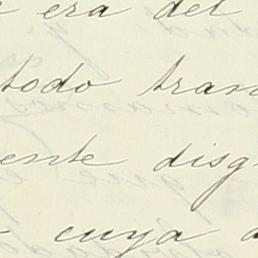 era del
todo tran
ente disg
cuya a